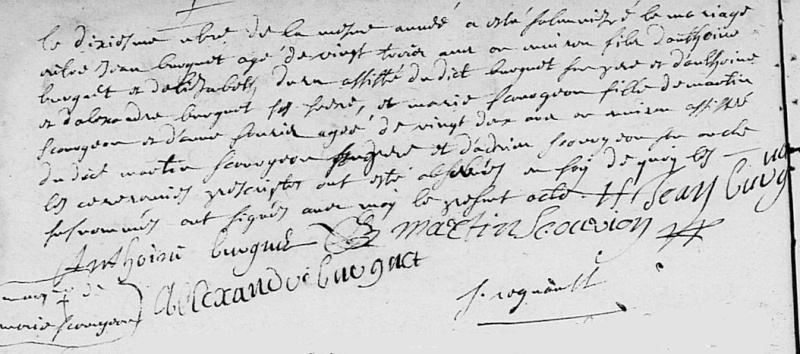 le dixiesme xbre de la mesme année a esté solemnisé le mariage
entre Jean burguet agé de vingt trois ans ou environ fils d'anthoine
burguet et delisabeth assisté dudict burguet son pere et danthoine
et dalexandre burguet ses freres, et marie scourgeon fille de martin
scourgeon et danne agée de vingt deux ans ou environ assistée
dudict martin scourgeon son pere et dadrien scourgeon son oncle
les ceremonies prescriptes ont esté observées en foy de quoy les
susnommés ont signés avec moy le present acte Jean burguet
Anthoine burguet martin scourion
marque de
marie scourgeon Allexandre burguet